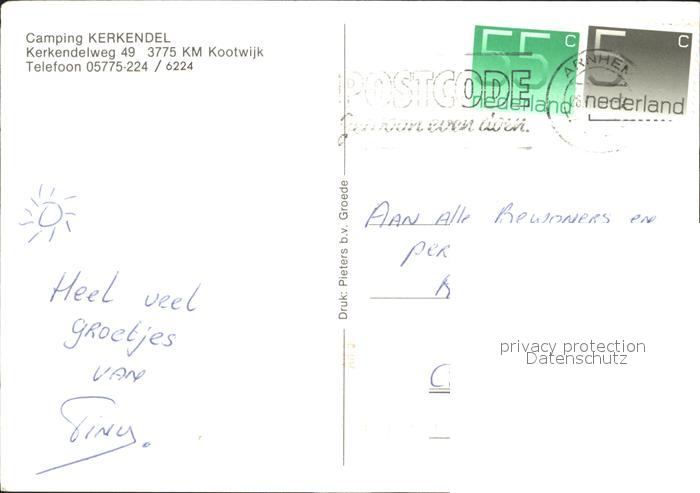 Camping KERKENDEL
Kerkendelweg 49 3775 KM Kootwijk
Telefoon 05775-224 / 6224
55 c
nederland
5 c
nederland
ARNHEM
POSTCODE
gewoon even doen.
Druk: Pieters b.v. Groede
Aan alle Bewoners en
per
Heel veel
groetjes
van
Tiny.
privacy protection
Datenschutz